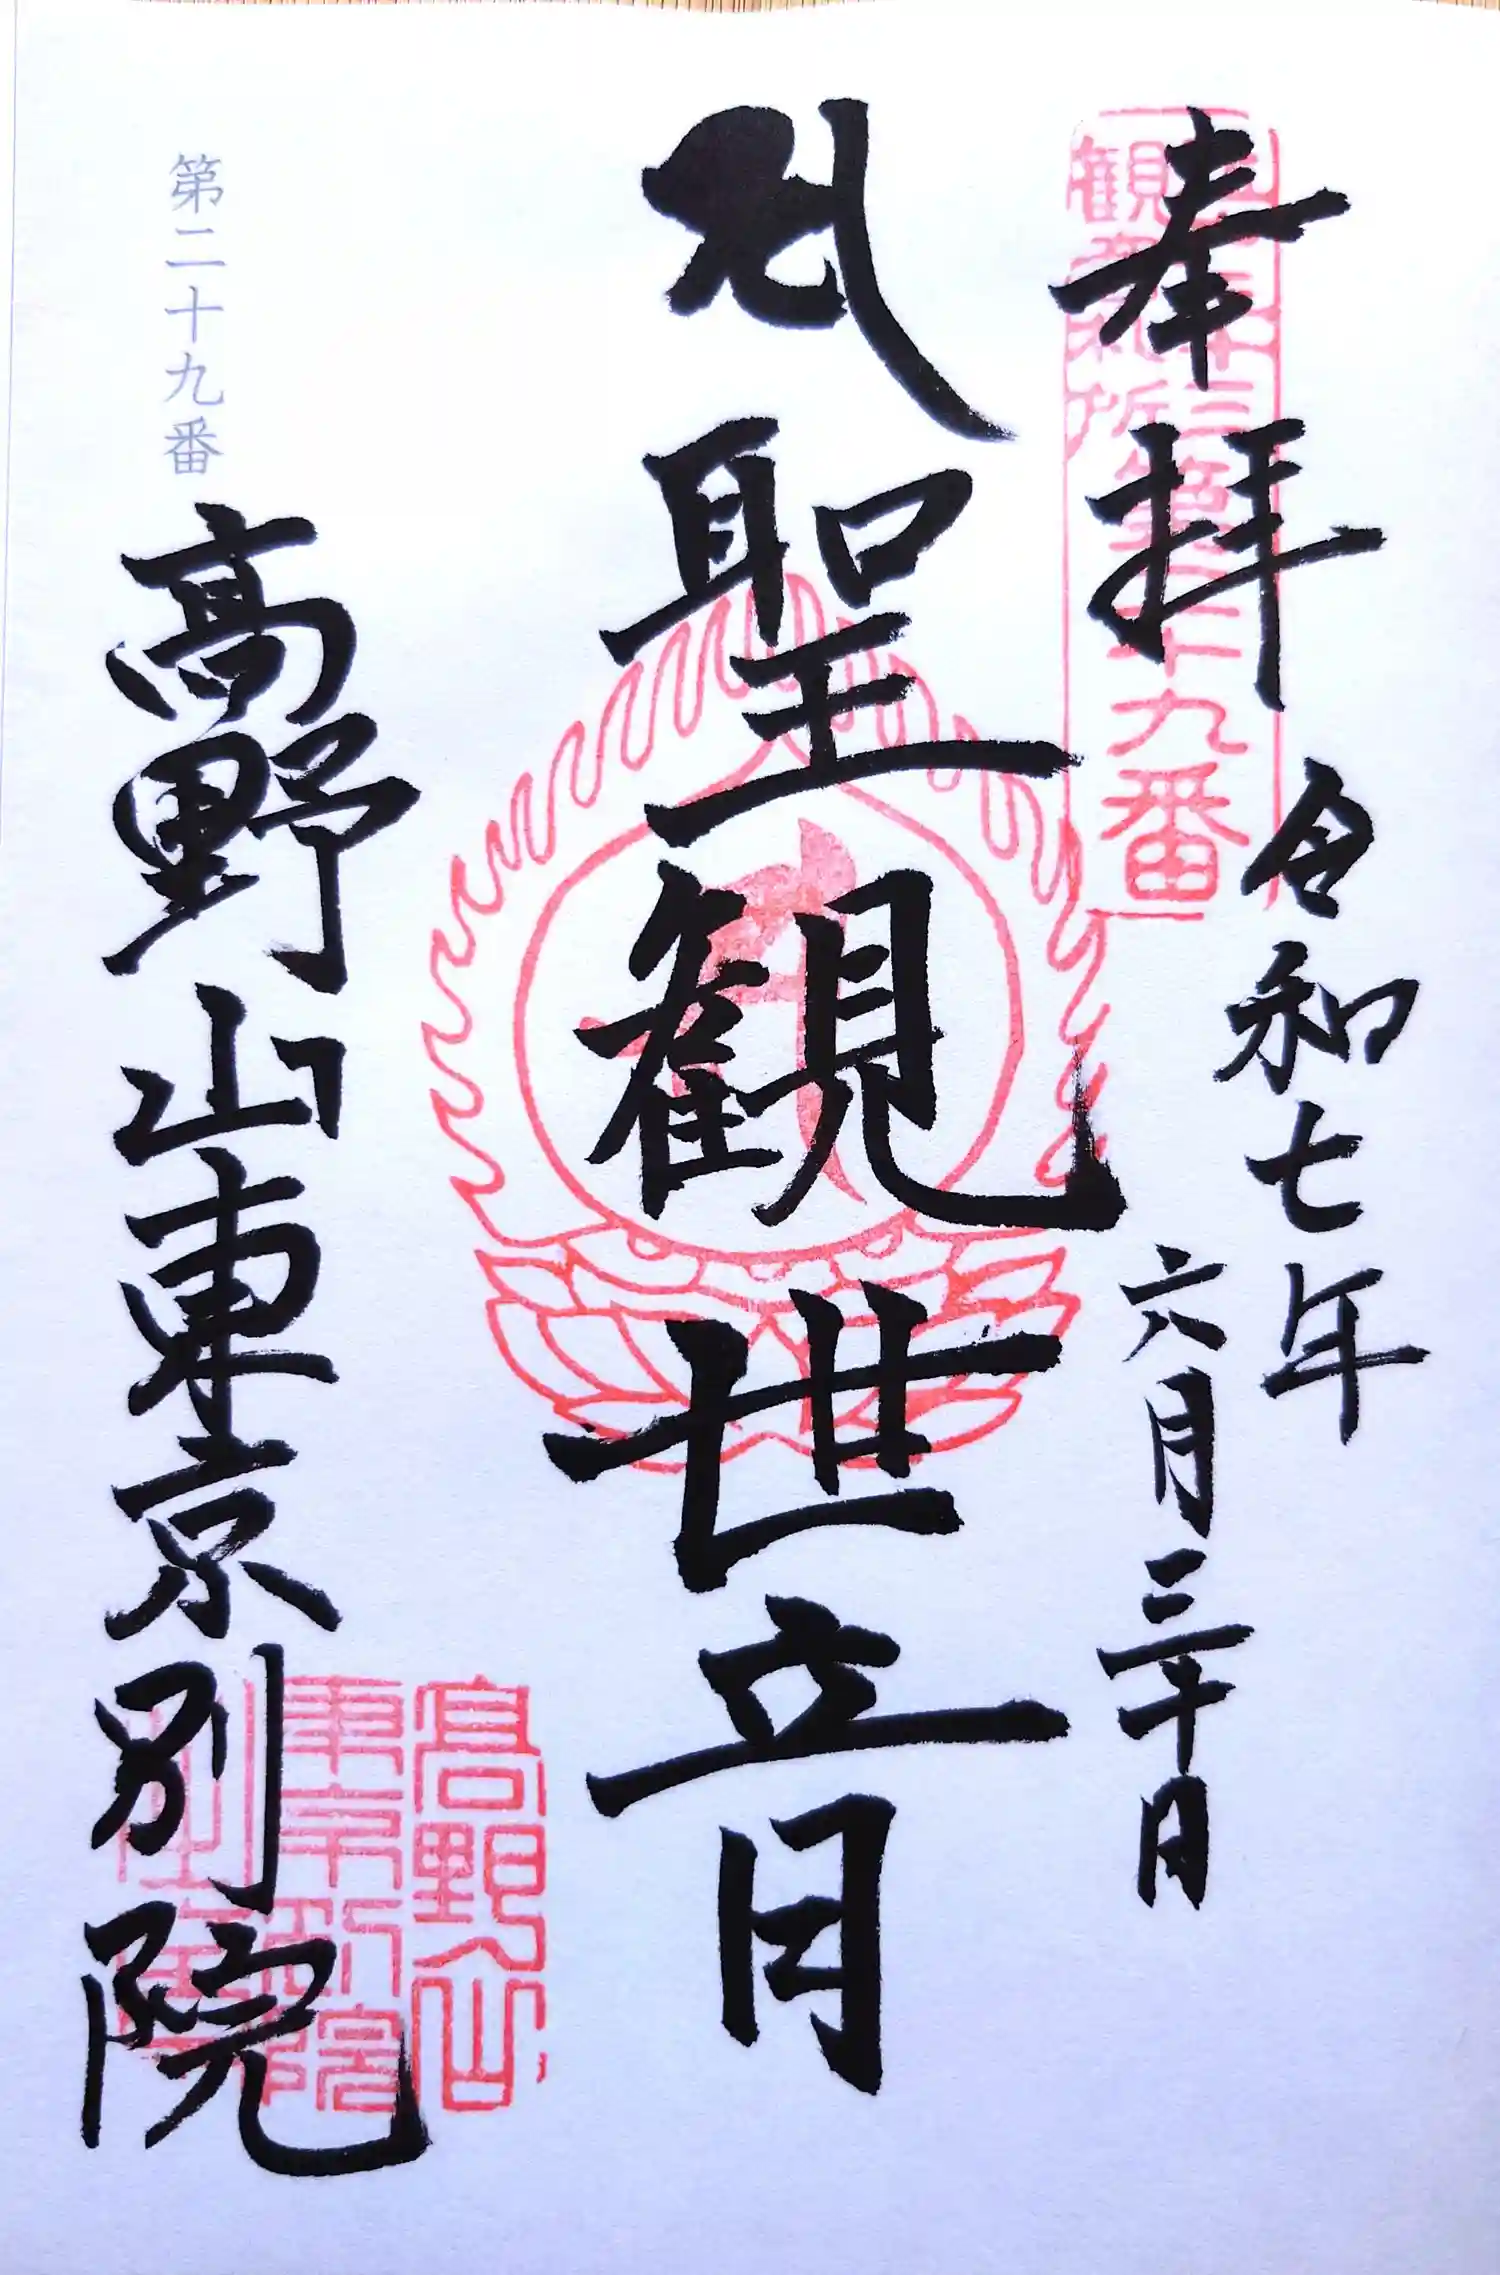 奉拝
令和七年
六月三十日
聖観世音
第二十九番
高野山東京別院
第二十九番
高野山
東京別院